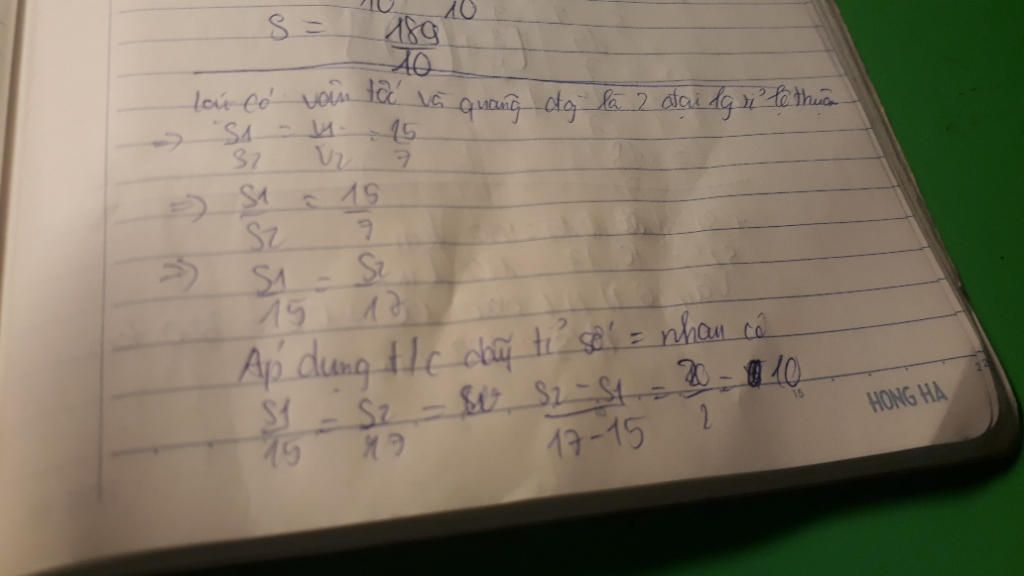 10 10
S = 189/10
Lại có vận tốc và quãng đg là 2 đại lg tỉ lệ thuận
=> S1/S2 = V1/V2 = 15/7
=> S1/S2 = 15/7
=> S1/15 = S2/17
Áp dụng t/c dãy tỉ số = nhau có
S1/15 = S2/17 = S2-S1/17-15 = 20/2 = 10
HONG HA